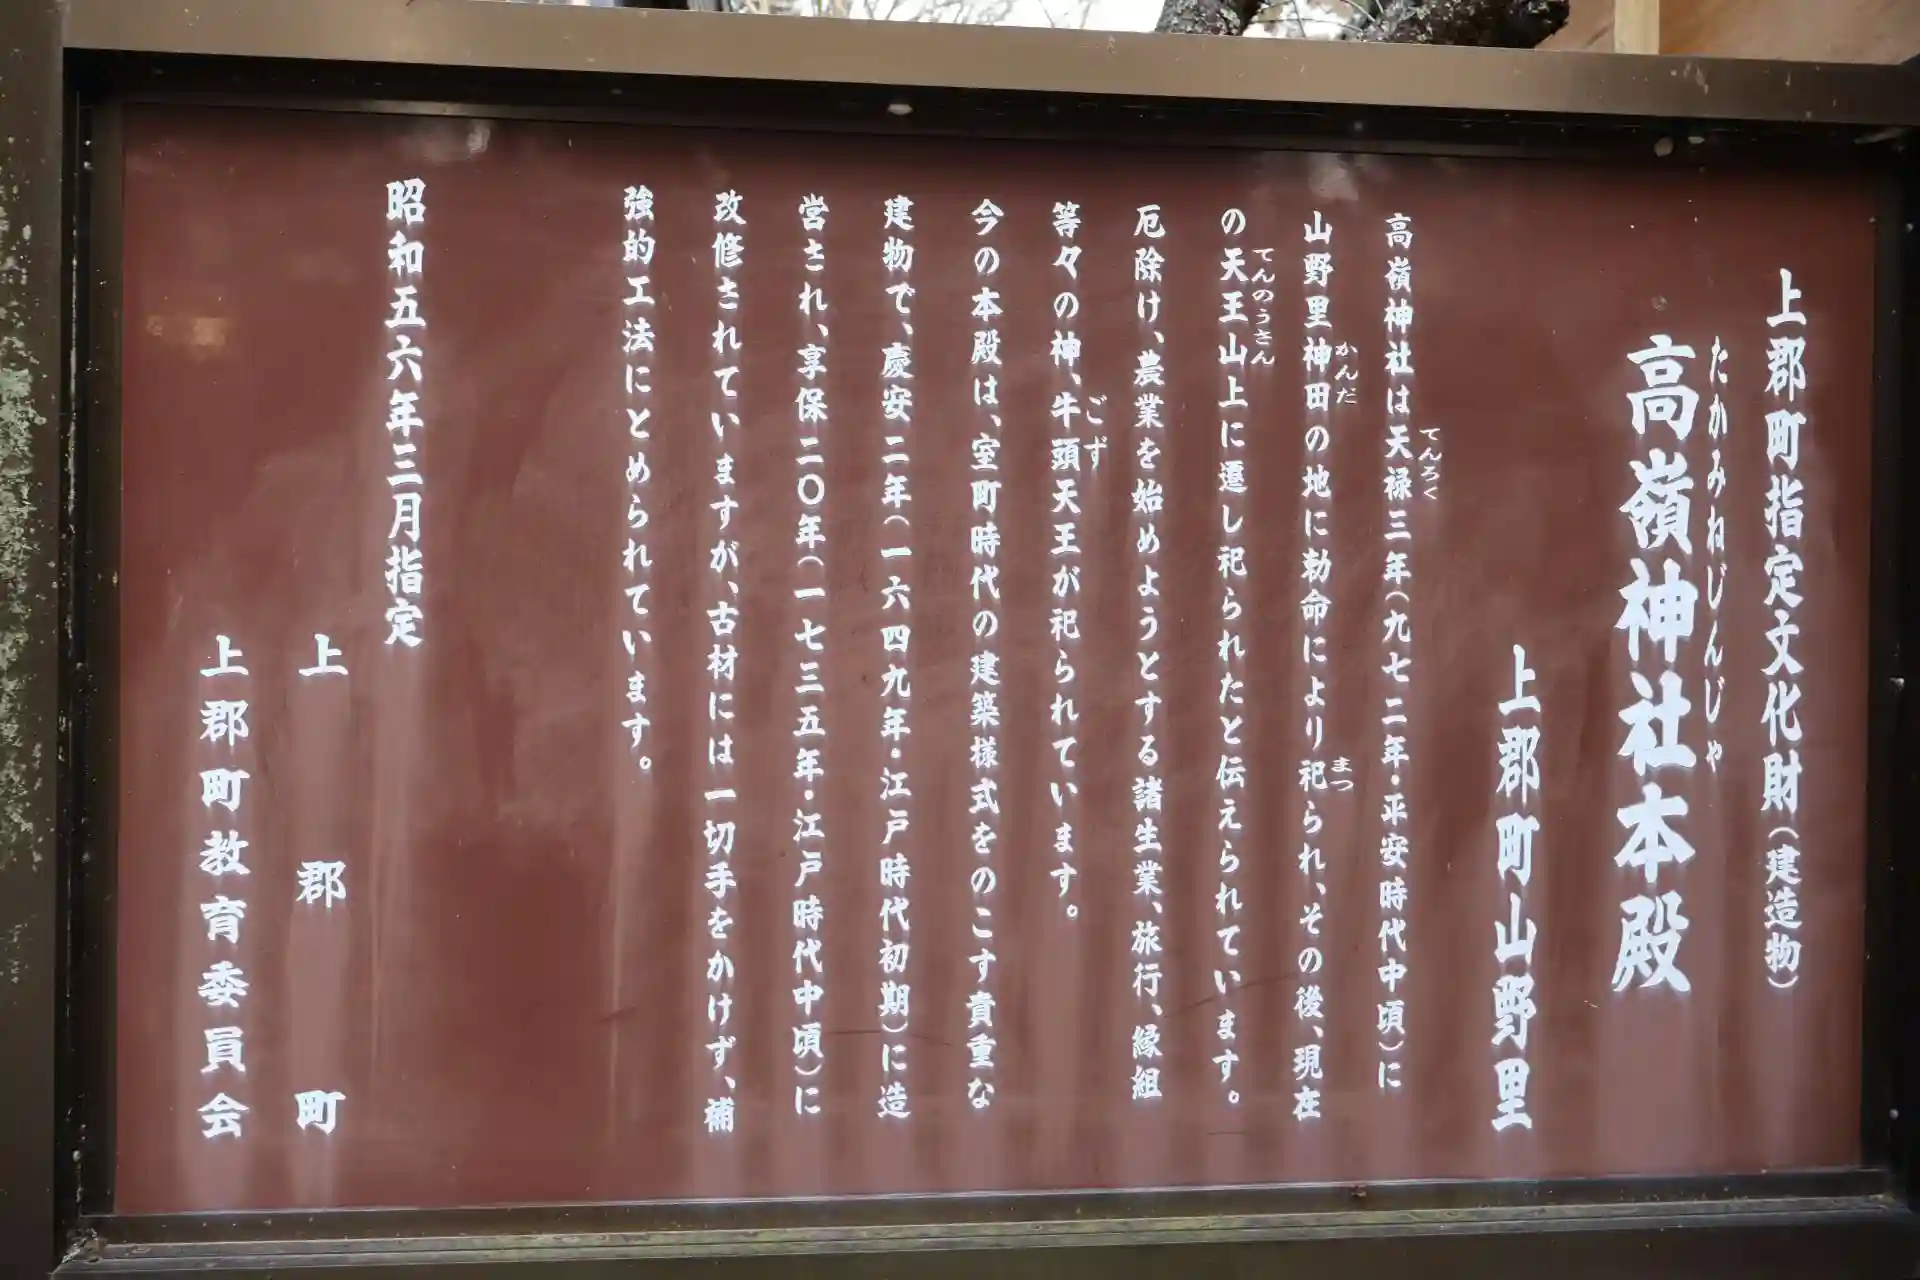 上郡町指定文化財（建造物）
たかみねじんじゃ
高嶺神社本殿
上郡町山野里
てんろく
高嶺神社は天禄三年（九七二年・平安時代中頃）に
かんだ
まつ
山野里神田の地に勅命により祀られ、その後、現在
てんのうさん
の天王山上に遷し祀られたと伝えられています。
厄除け、農業を始めようとする諸生業、旅行、縁組
ごず
等々の神、牛頭天王が祀られています。
今の本殿は、室町時代の建築様式をのこす貴重な
建物で、慶安二年（一六四九年・江戸時代初期）に造
営され、享保二〇年（一七三五年・江戸時代中頃）に
改修されていますが、古材には一切手をかけず、補
強的工法にとめられています。
昭和五六年三月指定
上郡町
上郡町教育委員会